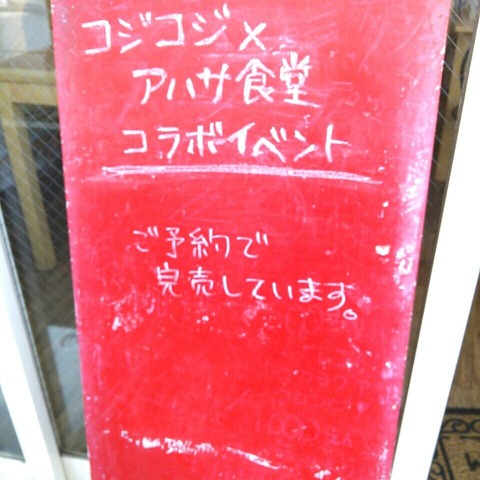 コジコジ×
アハサ食堂
コラボイベント
ご予約で
完売しています。